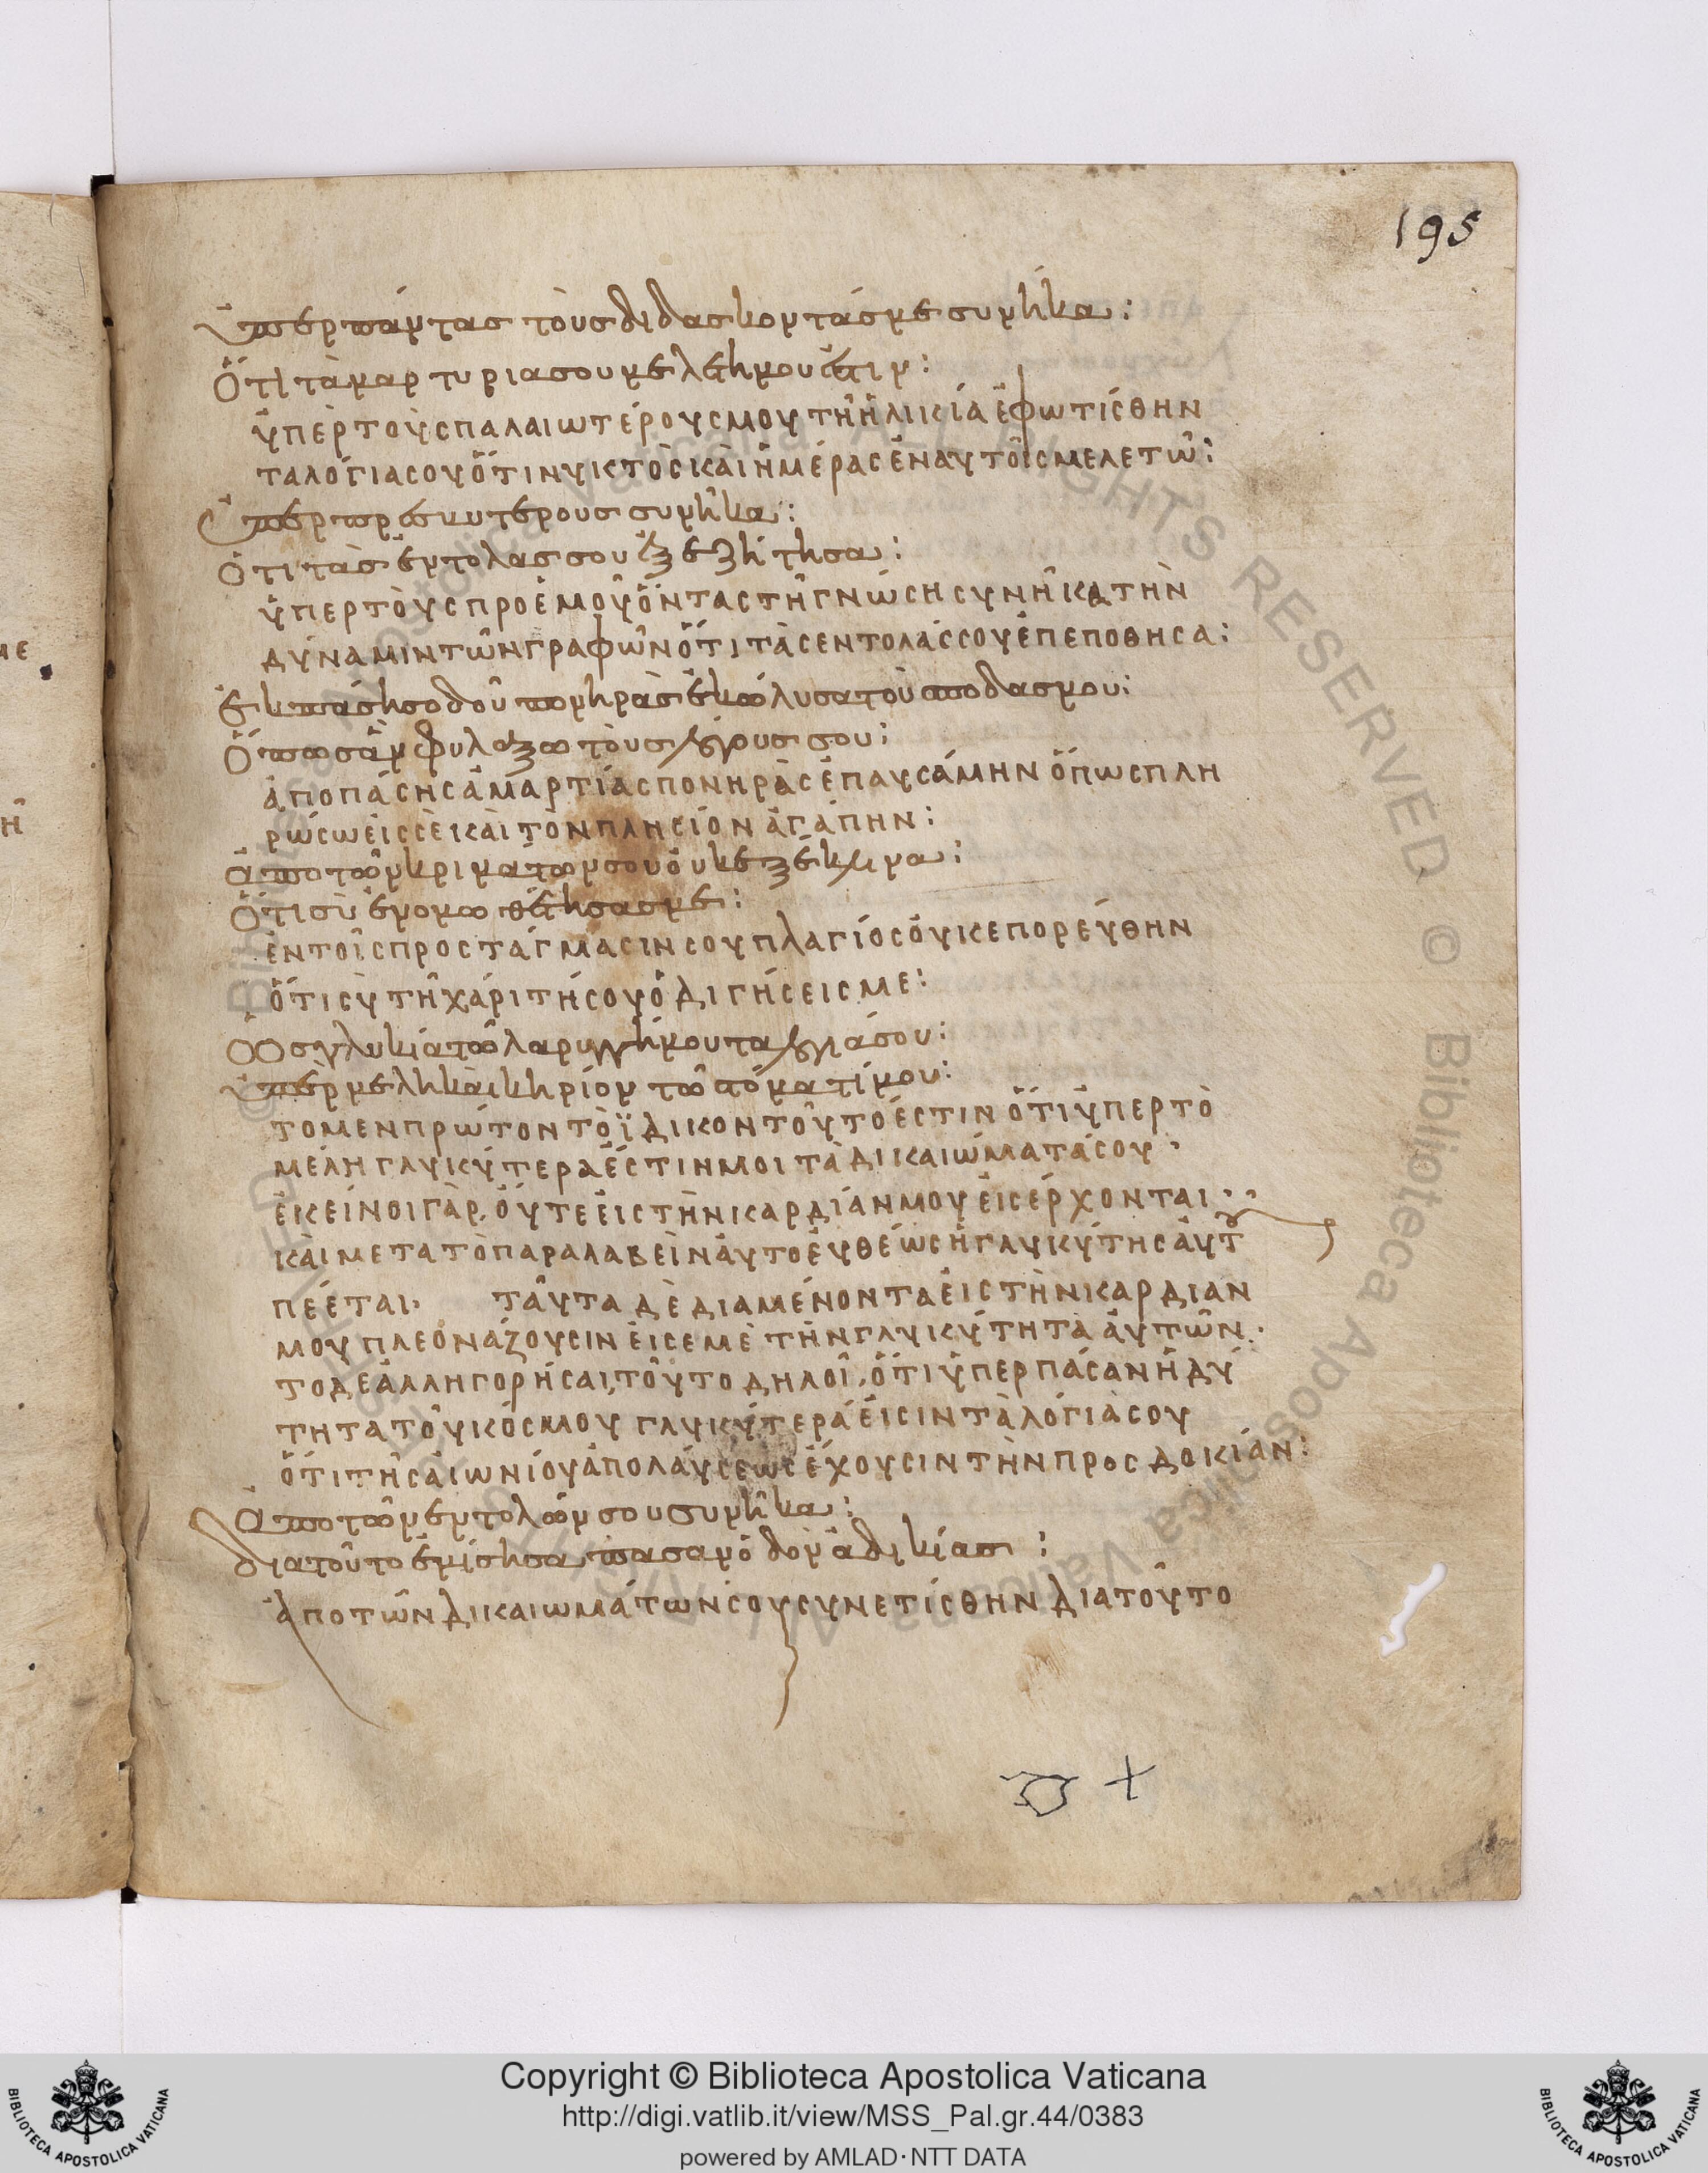 195
Ὑπερπάντας τοὺς διδασκοντάσμε συνῆκα:
Ὅτι τὰ μαρτυρια σου μελετη μου ἐστιν:
ὑπὲρ τοὺς παλαιωτέρους μου τῆ ἡλικία ἐφωτίσθην
τα λόγια σου ὅτι νυκτὸς καὶ ἡμέρας ἐν αυτοῖς μελετῶ:
Ὑπερ πρεσβυτερους συνῆκα:
Ὅτι τὰς ἐντολας σου ἐξεζήτησα:
ὑπερ τοὺς προ ἐμοῦ ὄντας τῆ γνώση συνῆκα τὴν
δύναμιν τῶν γραφῶν ὅτι τὰς εντολάς σου ἐπεποθησα:
Ἐκ πάσης οδοῦ πονηρὰς ἐκώλυσα τοὺς ποδας μου:
Ὅπως ἂν φυλαξω τοὺς λόγους σου:
ἀπο πάσης ἁμαρτίας πονηρὰς ἐπαυσάμην ὅπως πλη
ρώσω εἰς σὲ καὶ τὸν πλησίον ἀγάπην:
Ἀπο τῶν κριμάτων σου οὐκ εξέκλινα:
Ὅτι σὺ ἐνομοθέτησας με:
ἐν τοῖς προστάγμασιν σου πλαγίος οὐκ επορεύθην
ὅτι σὺ τῆ χάριτή σου ὁδιγήσεις με:
Ὡς γλυκέα τῶ λαρυγγί μου τα λόγιά σου:
Ὑπὲρ μελη καὶ κηρίον τῶ στόματί μου:
το μεν πρώτον τὸ ϊδικον τοῦτο ἐστιν ὅτι ὑπερ τὸ
μέλη γλυκύτερα ἐστιν μοι τὰ δικαιώματά σου·
ἐκείνοι γὰρ, οὔτε εἰς τὴν καρδίαν μου εἰσέρχονται··
καὶ μετα τὸ παραλαβεῖν ἀυτο ἐυθέως ἡ γλυκύτης ἀυτου
πέεται· ταῦτα δὲ διαμένοντα εἰς τὴν καρδιαν
μου πλεονάζουσιν εἰς εμὲ τὴν γλυκύτητα ἀυτῶν·
το δε ἀλληγορήσαι, τοῦτο δηλοῖ, ὅτι ὑπερ πάσαν ἡδύ
τητα τοῦ κόσμου γλυκύτερά εἰσιν τὰ λόγιὰ σου
ὅτι τῆς αἰωνίου ἀπολάυσεως ἔχουσιν τὴν προσδοκίαν:
Ἀπο τῶν εντολῶν σου συνῆκα:
δια τοῦτο ἐμίσησα πασαν ὁδον ἀδικίας:
ἀπο τῶν δικαιωμάτων σου συνετίσθην δια τοῦτο
Copyright © Biblioteca Apostolica Vaticana
http://digi.vatlib.it/view/MSS_Pal.gr.44/0383
powered by AMLAD·NTT DATA